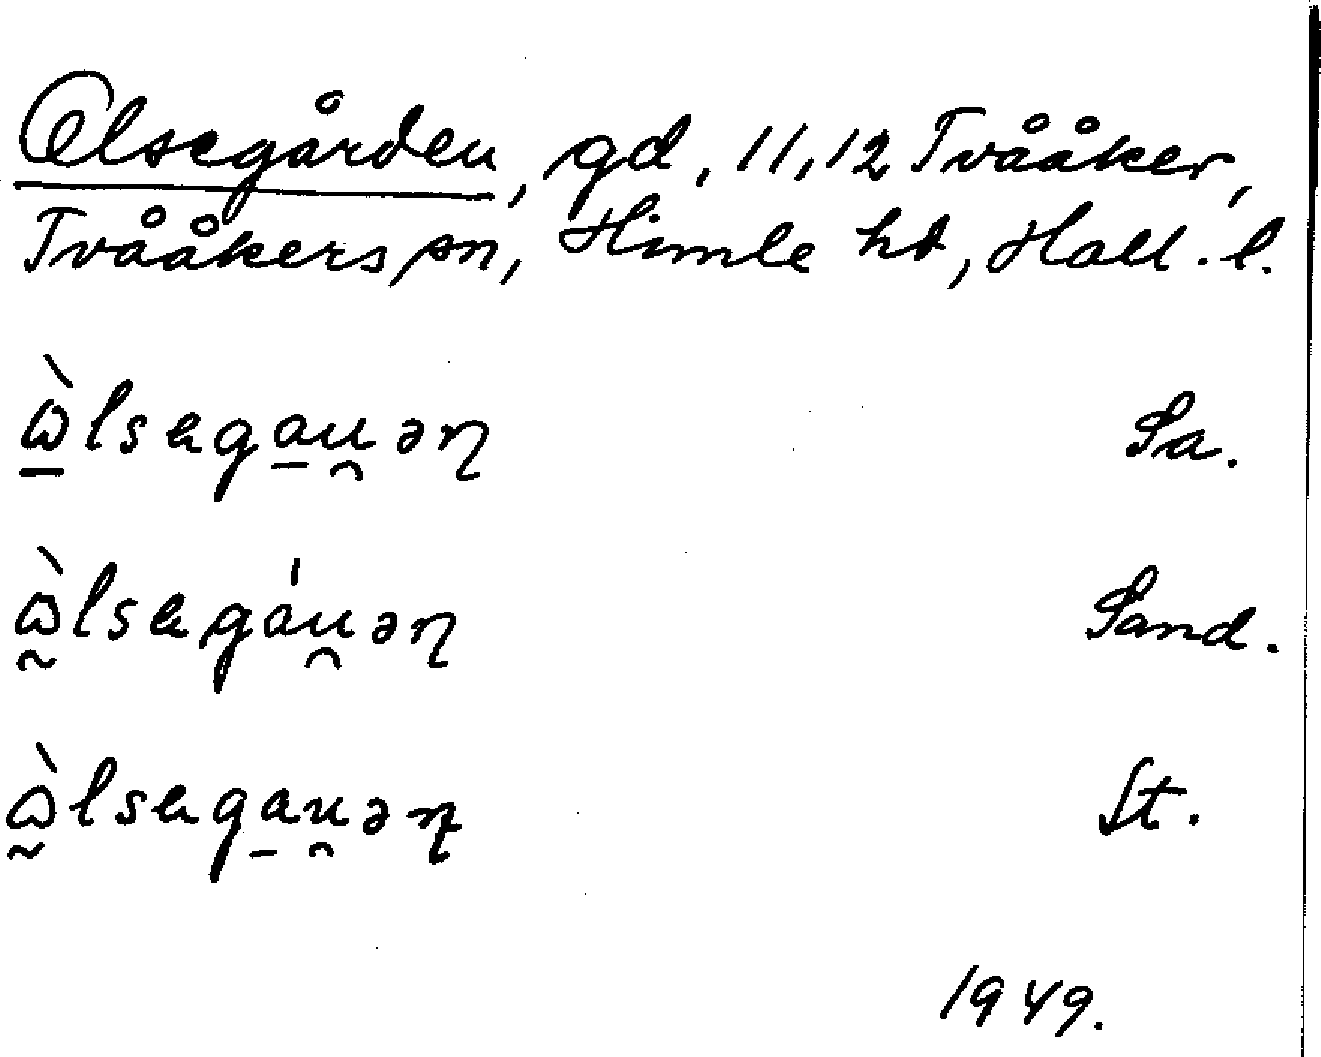 Olsegården, gd, 11,12 Tvååker,
Tvååkers sn, Himle hd, Hall. l.
ὼ̱lsega̱u̯ən Sa.
ὼ̰lsegáu̯ən Sand.
ὼ̰lsega̱u̯ən St.
1949.